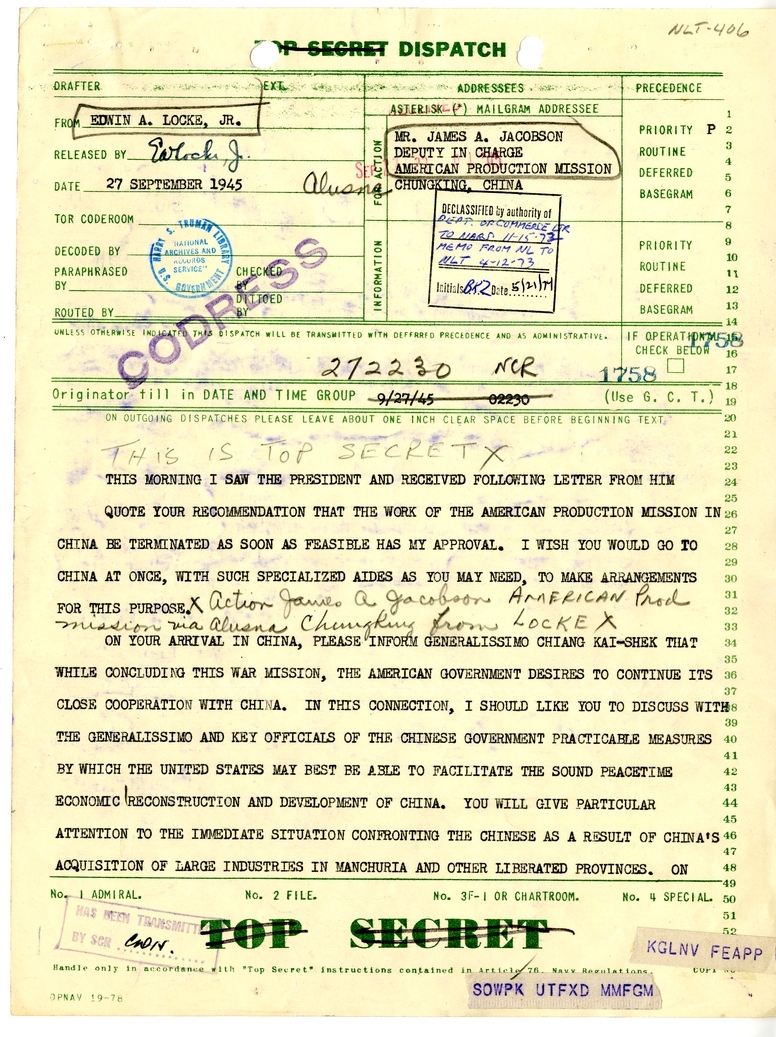 NLT-406
TOP SECRET DISPATCH
DRAFTER EXT. ADDRESSEES PRECEDENCE
ASTERISK (*) MAILGRAM ADDRESSEE
FROM EDWIN A. LOCKE, JR.
RELEASED BY EALocke Jr.
DATE 27 SEPTEMBER 1945
TOR CODEROOM
DECODED BY
PARAPHRASED BY
CHECKED BY
DITTOED BY
ROUTED BY
HARRY S. TRUMAN LIBRARY
"NATIONAL ARCHIVES AND RECORDS SERVICE"
U.S. GOVERNMENT
CODRESS
FOR ACTION
MR. JAMES A. JACOBSON
DEPUTY IN CHARGE
AMERICAN PRODUCTION MISSION
Alusna CHUNGKING, CHINA
INFORMATION
DECLASSIFIED by authority of
DEPT. OF COMMERCE LTR
TO NARS 11-15-73
MEMO FROM NL TO
NLT 4-12-73
Initials BRZ Date 5/21/74
PRIORITY P
ROUTINE
DEFERRED
BASEGRAM
PRIORITY
ROUTINE
DEFERRED
BASEGRAM
UNLESS OTHERWISE INDICATED THIS DISPATCH WILL BE TRANSMITTED WITH DEFERRED PRECEDENCE AND AS ADMINISTRATIVE.
IF OPERATIONAL CHECK BELOW
1758
272230 NCR
1758
Originator fill in DATE AND TIME GROUP 9/27/45 02230 (Use G. C. T.)
ON OUTGOING DISPATCHES PLEASE LEAVE ABOUT ONE INCH CLEAR SPACE BEFORE BEGINNING TEXT
THIS IS TOP SECRET X
THIS MORNING I SAW THE PRESIDENT AND RECEIVED FOLLOWING LETTER FROM HIM
QUOTE YOUR RECOMMENDATION THAT THE WORK OF THE AMERICAN PRODUCTION MISSION IN
CHINA BE TERMINATED AS SOON AS FEASIBLE HAS MY APPROVAL. I WISH YOU WOULD GO TO
CHINA AT ONCE, WITH SUCH SPECIALIZED AIDES AS YOU MAY NEED, TO MAKE ARRANGEMENTS
FOR THIS PURPOSE. X Action James A Jacobson AMERICAN Prod
mission via Alusna Chungking from LOCKE X
ON YOUR ARRIVAL IN CHINA, PLEASE INFORM GENERALISSIMO CHIANG KAI-SHEK THAT
WHILE CONCLUDING THIS WAR MISSION, THE AMERICAN GOVERNMENT DESIRES TO CONTINUE ITS
CLOSE COOPERATION WITH CHINA. IN THIS CONNECTION, I SHOULD LIKE YOU TO DISCUSS WITH
THE GENERALISSIMO AND KEY OFFICIALS OF THE CHINESE GOVERNMENT PRACTICABLE MEASURES
BY WHICH THE UNITED STATES MAY BEST BE ABLE TO FACILITATE THE SOUND PEACETIME
ECONOMIC RECONSTRUCTION AND DEVELOPMENT OF CHINA. YOU WILL GIVE PARTICULAR
ATTENTION TO THE IMMEDIATE SITUATION CONFRONTING THE CHINESE AS A RESULT OF CHINA'S
ACQUISITION OF LARGE INDUSTRIES IN MANCHURIA AND OTHER LIBERATED PROVINCES. ON
1
2
3
4
5
6
7
8
9
10
11
12
13
14
15
16
17
18
19
20
21
22
23
24
25
26
27
28
29
30
31
32
33
34
35
36
37
38
39
40
41
42
43
44
45
46
47
48
49
50
51
52
No. 1 ADMIRAL. No. 2 FILE. No. 3F-1 OR CHARTROOM. No. 4 SPECIAL.
HAS BEEN TRANSMITTED
BY SCR
TOP SECRET
KGLNV FEAPP
Handle only in accordance with "Top Secret" instructions contained in Article 76, Navy Regulations.
SOWPK UTFXD MMFGM
OPNAV 19-78